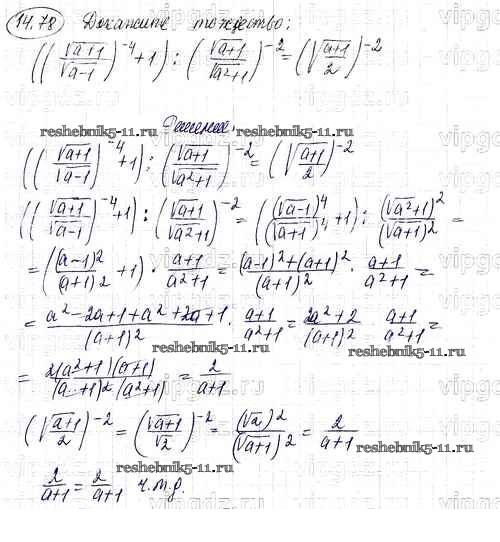 14.78 Докажите тождество:
((√(a+1)/√(a-1))^-4 + 1) : (√(a+1)/√(a²+1))^-2 = (√((a+1)/2))^-2
Решение.
reshebnik5-11.ru
((√(a+1)/√(a-1))^-4 + 1) : (√(a+1)/√(a²+1))^-2 = (√((a+1)/2))^-2
((√(a+1)/√(a-1))^-4 + 1) : (√(a+1)/√(a²+1))^-2 = ((√(a-1))^4/(√(a+1))^4 + 1) : (√(a²+1))^2/(√(a+1))^2 =
= ((a-1)^2/(a+1)^2 + 1) · (a+1)/(a²+1) = ((a-1)^2+(a+1)^2)/(a+1)^2 · (a+1)/(a²+1) =
= (a²-2a+1+a²+2a+1)/(a+1)^2 · (a+1)/(a²+1) = (2a²+2)/(a+1)^2 · (a+1)/(a²+1) =
reshebnik5-11.ru
= 2(a²+1)(a+1)/((a+1)^2(a²+1)) = 2/(a+1)
(√((a+1)/2))^-2 = (√(a+1)/√2)^-2 = (√2)^2/(√(a+1))^2 = 2/(a+1)
reshebnik5-11.ru
2/(a+1) = 2/(a+1) ч.т.д.
vipgdz.com